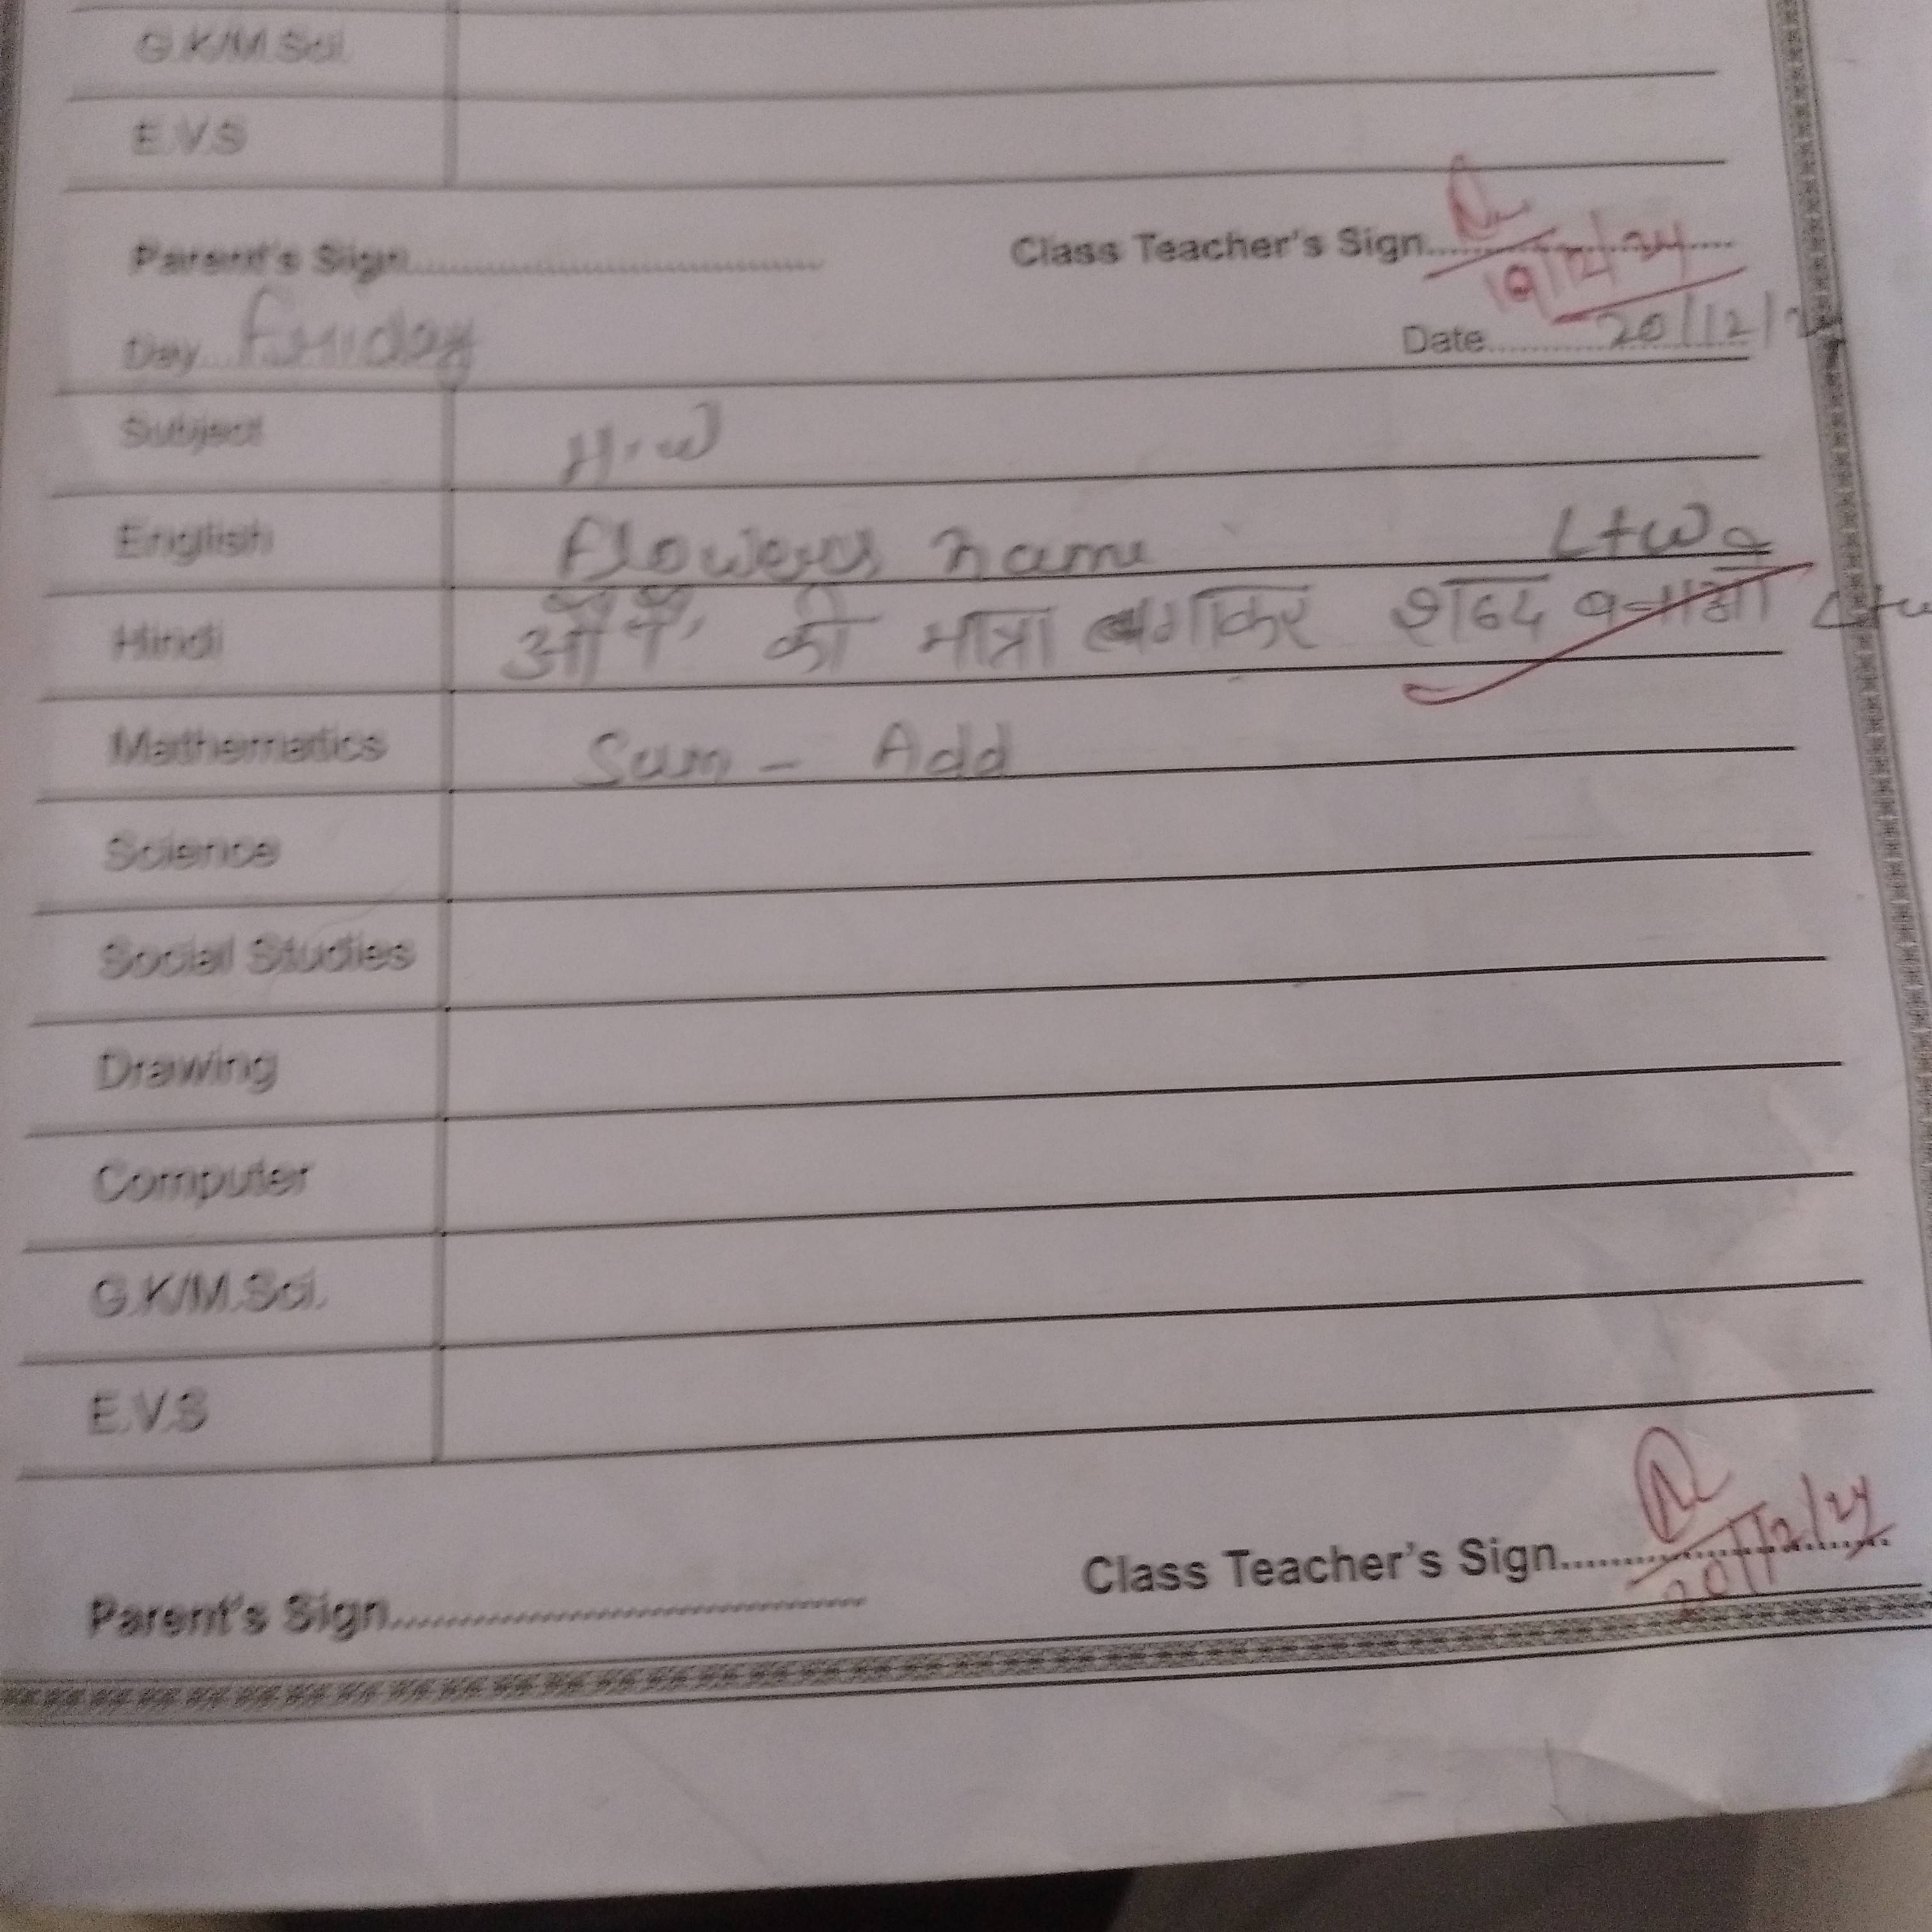 G.K/M.Sci.
E.V.S
Parent's Sign.................... Class Teacher's Sign.................... 19/12/24
Day Friday Date 20/12/2
Subject H.W
English Flowers name L+w
Hindi की मात्रा लगाकर शब्द बनाओ L+w
Mathematics Sum - Add
Science
Social Studies
Drawing
Computer
G.K/M.Sci.
E.V.S
Parent's Sign.................... Class Teacher's Sign.................... 20/12/24